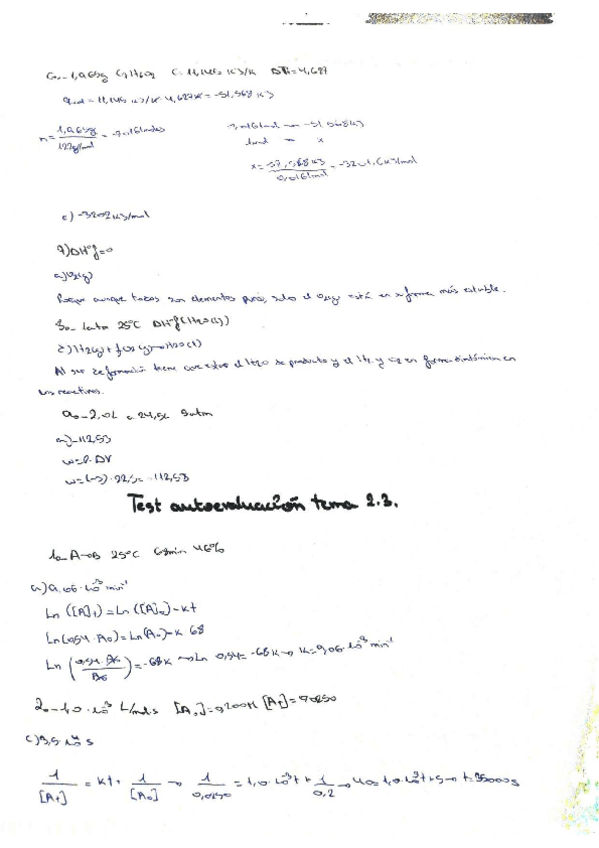 6.- 1,965g C7H6O2 C=11,145 KJ/K ΔT=4,627
qcal = 11,145 KJ/K · 4,627K = -51,568 KJ
n = 1,965g / 122g/mol = 0,0161 moles
0,0161mol — -51,568KJ
1mol — x
x = -51,568KJ / 0,0161mol = -3201,6 KJ/mol
c) -3202 KJ/mol
7) ΔHºf=0
a) O2(g)
Porque aunque todos son elementos puros, solo el O2(g) está en su forma más estable.
8.- 1atm 25ºC ΔHºf(H2O(l))
2) H2(g) + ½O2(g) → H2O(l)
Al ser de formación tiene que estar el H2O de producto y el H2 y O2 en forma diatómica en
los reactivos.
9.- 2,0L a 24,5L 5atm
a) -112,53
w=P·ΔV
w=(-5)·22,5= -112,53
Test autoevaluación tema 2.3.
1.- A→B 25ºC 68min 46%
a) 9,06·10⁻³ min⁻¹
Ln ([A]t) = Ln ([A]0) - Kt
Ln(0,54·A0) = Ln(A0) - K 68
Ln (0,54·A0 / A0) = -68K → Ln 0,54 = -68K → K=9,06·10⁻³ min⁻¹
2.- 1,0·10⁻³ L/mol·s [A0]=0,200M [At]=0,0250
c) 3,5·10⁴ s
1/[At] = Kt + 1/[A0] → 1/0,0250 = 1,0·10⁻³t + 1/0,2 → 40=1,0·10⁻³t+5 → t=35000s